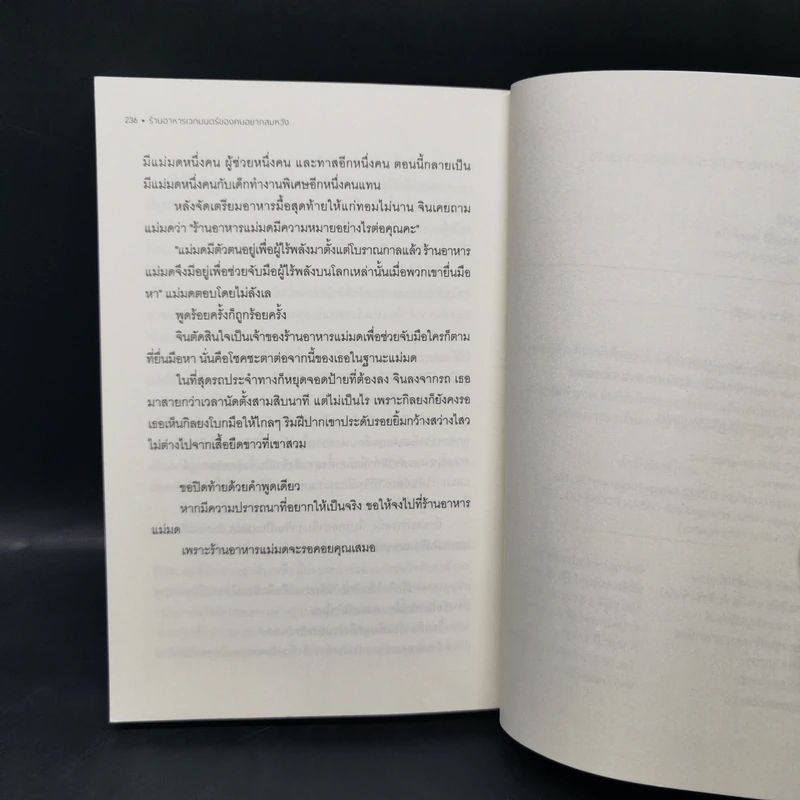 236 • ร้านอาหารเวทมนตร์ของคนอยากสมหวัง
มีแม่มดหนึ่งคน ผู้ช่วยหนึ่งคน และทาสอีกหนึ่งคน ตอนนี้กลายเป็น
มีแม่มดหนึ่งคนกับเด็กทำงานพิเศษอีกหนึ่งคนแทน
หลังจัดเตรียมอาหารมื้อสุดท้ายให้แก่ทอมไม่นาน จินเคยถาม
แม่มดว่า "ร้านอาหารแม่มดมีความหมายอย่างไรต่อคุณคะ"
"แม่มดมีตัวตนอยู่เพื่อผู้ไร้พลังมาตั้งแต่โบราณกาลแล้ว ร้านอาหาร
แม่มดจึงมีอยู่เพื่อช่วยจับมือผู้ไร้พลังบนโลกเหล่านั้นเมื่อพวกเขายื่นมือ
หา" แม่มดตอบโดยไม่ลังเล
พูดร้อยครั้งก็ถูกร้อยครั้ง
จินตัดสินใจเป็นเจ้าของร้านอาหารแม่มดเพื่อช่วยจับมือใครก็ตาม
ที่ยื่นมือหา นั่นคือโชคชะตาต่อจากนี้ของเธอในฐานะแม่มด
ในที่สุดรถประจำทางก็หยุดจอดป้ายที่ต้องลง จินลงจากรถ เธอ
มาสายกว่าเวลานัดตั้งสามสิบนาที แต่ไม่เป็นไร เพราะกิลยงก็ยังคงรอ
เธอเห็นกิลยงโบกมือให้ไกลๆ ริมฝีปากเขาประดับรอยยิ้มกว้างสว่างไสว
ไม่ต่างไปจากเสื้อยืดขาวที่เขาสวม
ขอปิดท้ายด้วยคำพูดเดียว
หากมีความปรารถนาที่อยากให้เป็นจริง ขอให้จงไปที่ร้านอาหาร
แม่มด
เพราะร้านอาหารแม่มดจะรอคอยคุณเสมอ